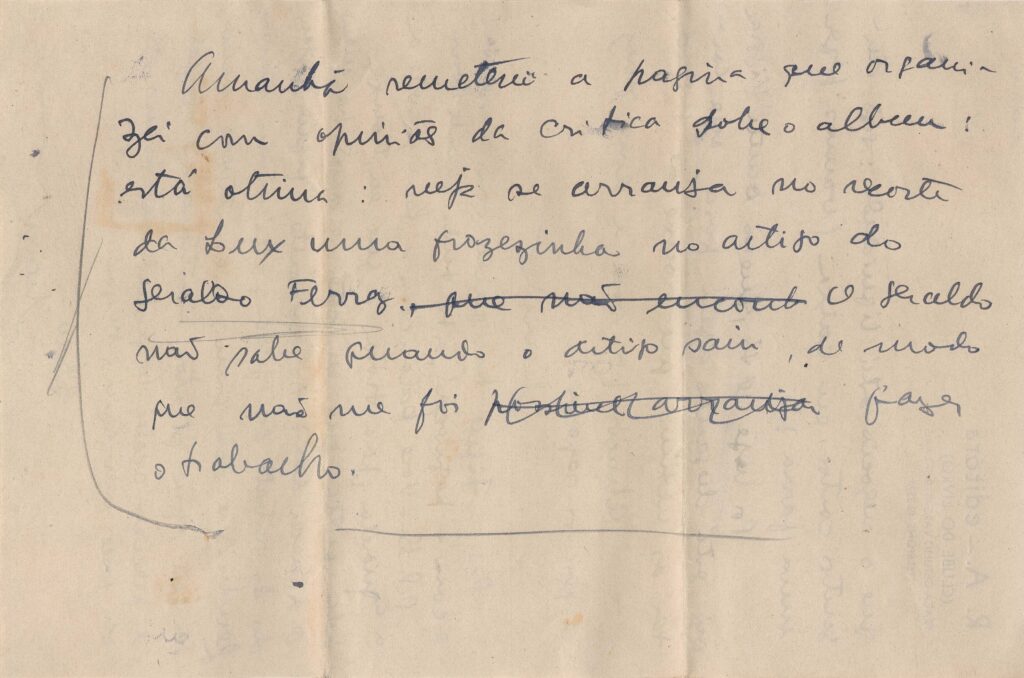 Amanhã remeterei a pagina que organi-
zei com opiniões da critica sobre o album:
está otima: veja se arranja no recorte
da Lux uma frazezinha no artigo do
Geraldo Ferraz, que não encont O Geraldo
não sabe quando o artigo saiu, de modo
que não me foi possivel arranjar fazer
o trabalho.